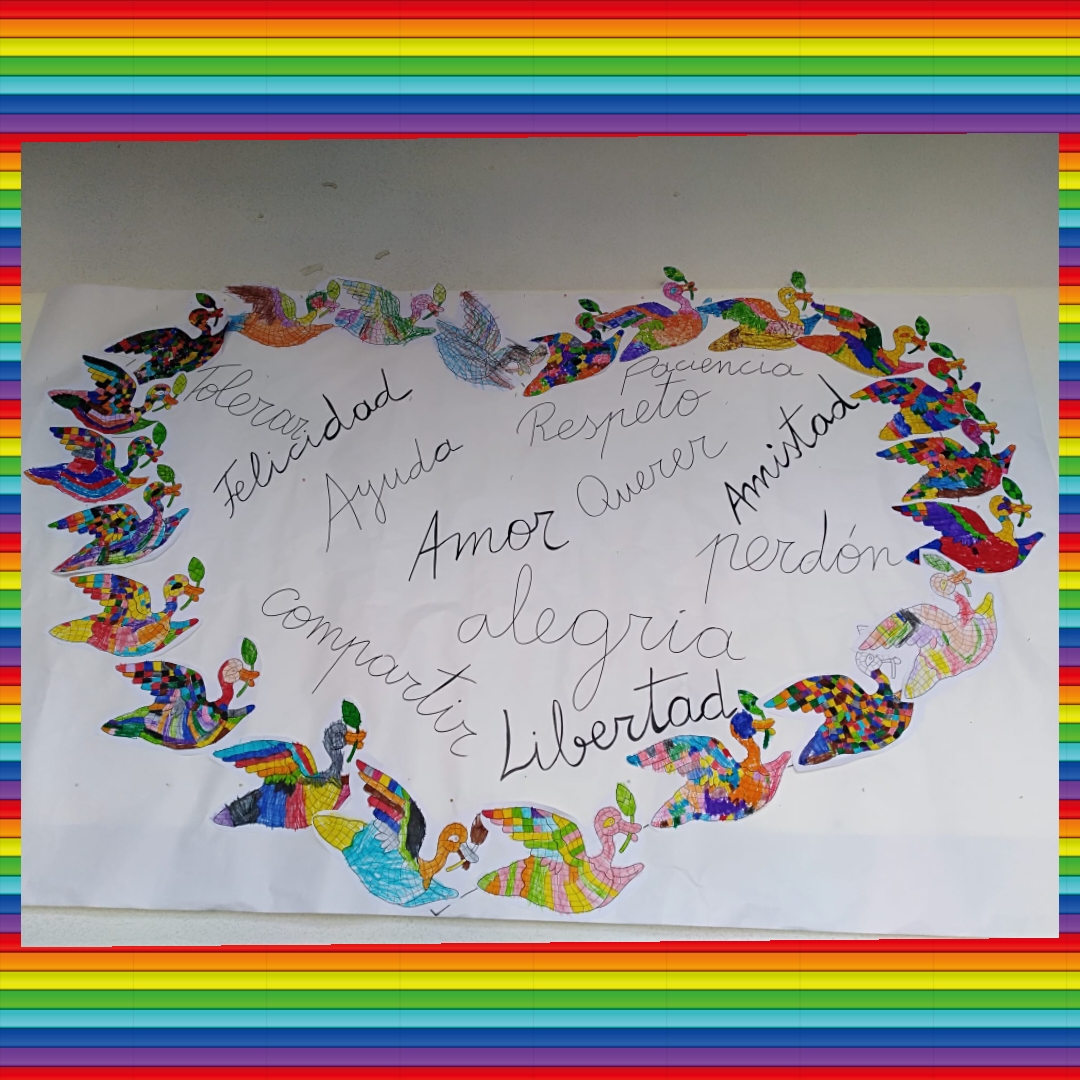 Paciencia
Tolerar
Felicidad
Respeto
Amistad
Ayuda
Querer
Amor
perdón
compartir
alegria
Libertad